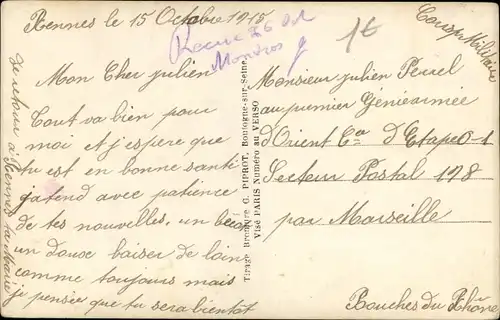 Rennes le 15 Octobre 1915
Mon Cher julien
Tout va bien pour
moi et j'espère que
tu est en bonne santé
j'atend avec patience
de tes nouvelles, un bon
un doux baiser de loin
comme toujours mais
je pensée que tu sera bientot
a Rennes ta Marie
Tirage Bromure G. PIPROT, Boulogne-sur-Seine.
Visé PARIS Numéro au VERSO
1f
Corresp Militaire
Monsieur julien Perrel
au premier Génie armée
d'Orient Cie d'Etape 0-1
Secteur Postal 178
par Marseille
Bouches du Rhône